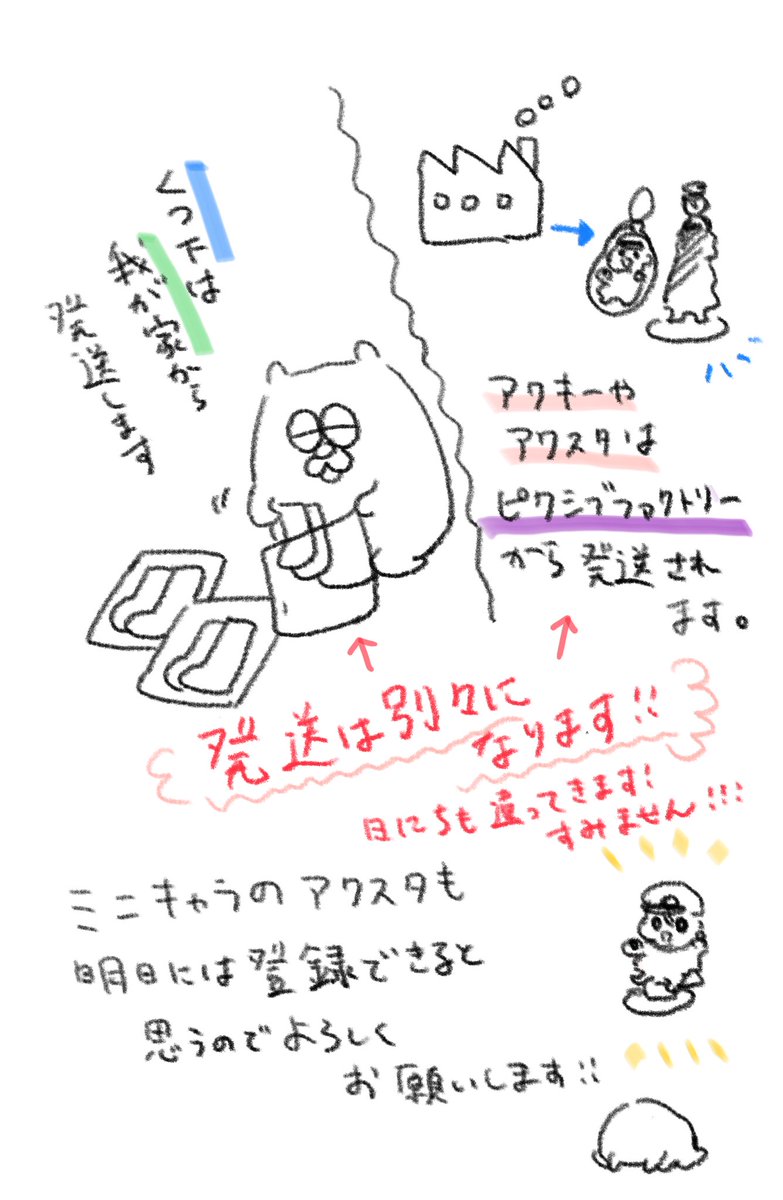 くつ下は
我が家から
発送します
アクキーや
アクスタは
ピクシブファクトリー
から発送され
ます。
発送は別々に
なります!!
日にちも違ってきます!
すみません!!!
ミニキャラのアクスタも
明日には登録できると
思うのでよろしく
お願いします!!